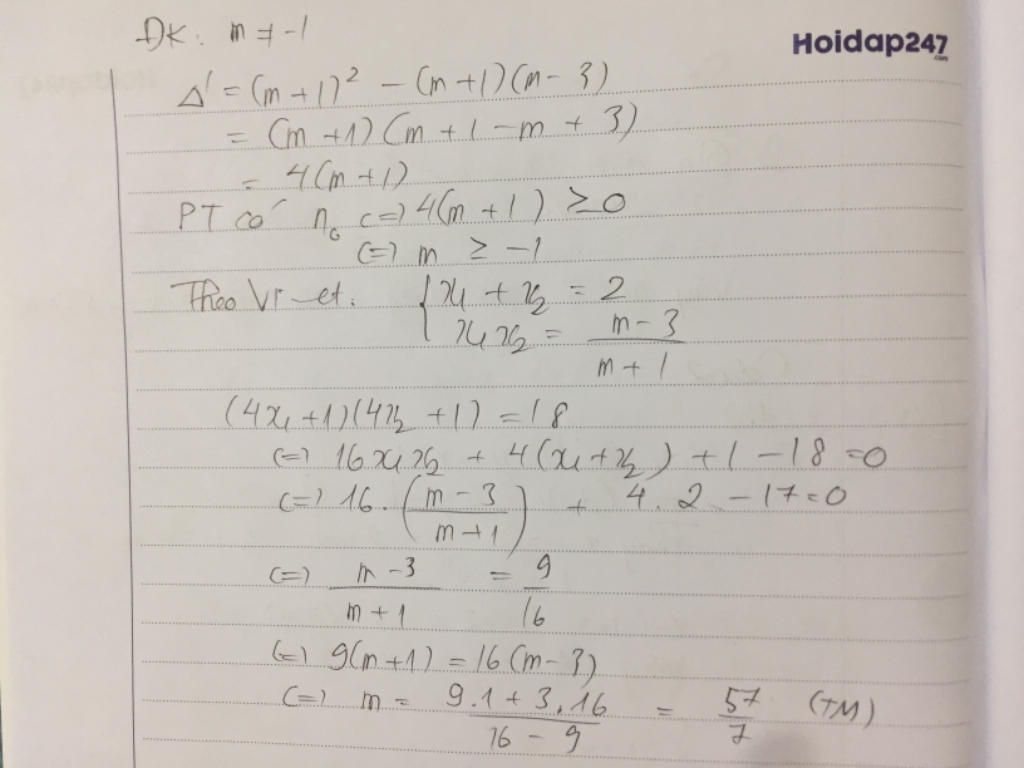 ĐK: m ≠ -1
Hoidap247.com
Δ' = (m + 1)² - (m + 1)(m - 3)
= (m + 1)(m + 1 - m + 3)
= 4(m + 1)
PT có n₀ <=> 4(m + 1) ≥ 0
<=> m ≥ -1
Theo Vi-et: { x₁ + x₂ = 2
x₁x₂ = (m - 3)/(m + 1)
(4x₁ + 1)(4x₂ + 1) = 18
<=> 16x₁x₂ + 4(x₁ + x₂) + 1 - 18 = 0
<=> 16.((m - 3)/(m + 1)) + 4.2 - 17 = 0
<=> (m - 3)/(m + 1) = 9/16
<=> 9(m + 1) = 16(m - 3)
<=> m = (9.1 + 3.16)/(16 - 9) = 57/7 (TM)